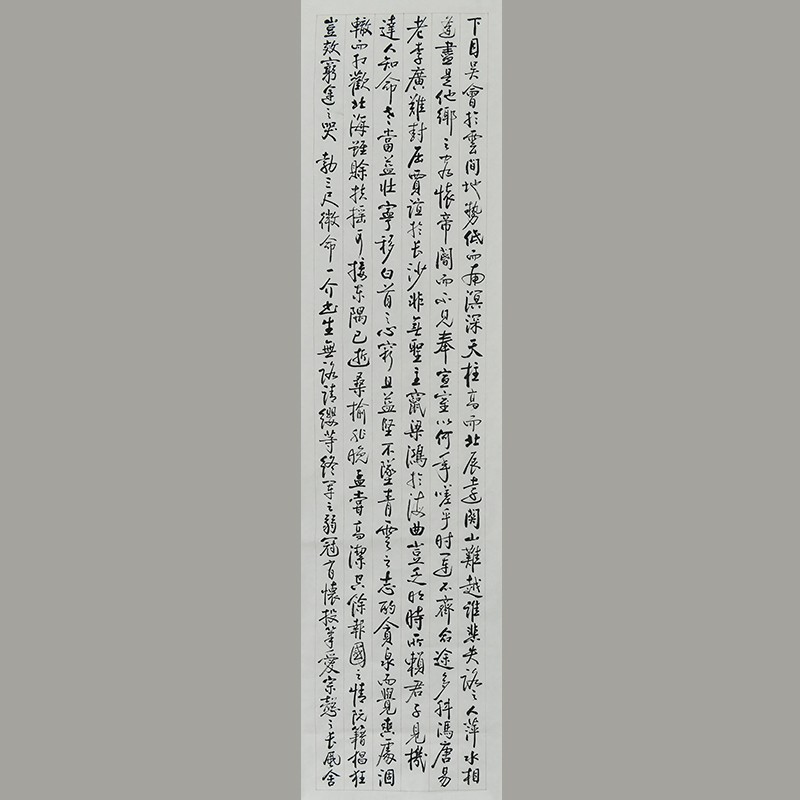 下目吳會於雲間地勢低而南溟深天柱高而北辰遠關山難越誰悲失路之人萍水相
逢盡是他鄉之客懷帝閽而不見奉宣室以何年嗟乎時運不齊命途多舛馮唐易
老李廣難封屈賈誼於長沙非無聖主竄梁鴻於海曲豈乏明時所賴君子見機
達人知命老當益壯寧移白首之心窮且益堅不墜青雲之志酌貪泉而覺爽處涸
轍而相歡北海雖賒扶搖可接東隅已逝桑榆非晚孟嘗高潔空餘報國之情阮籍猖狂
豈效窮途之哭 勃三尺微命一介書生無路請纓等終軍之弱冠有懷投筆愛宗愨之長風舍